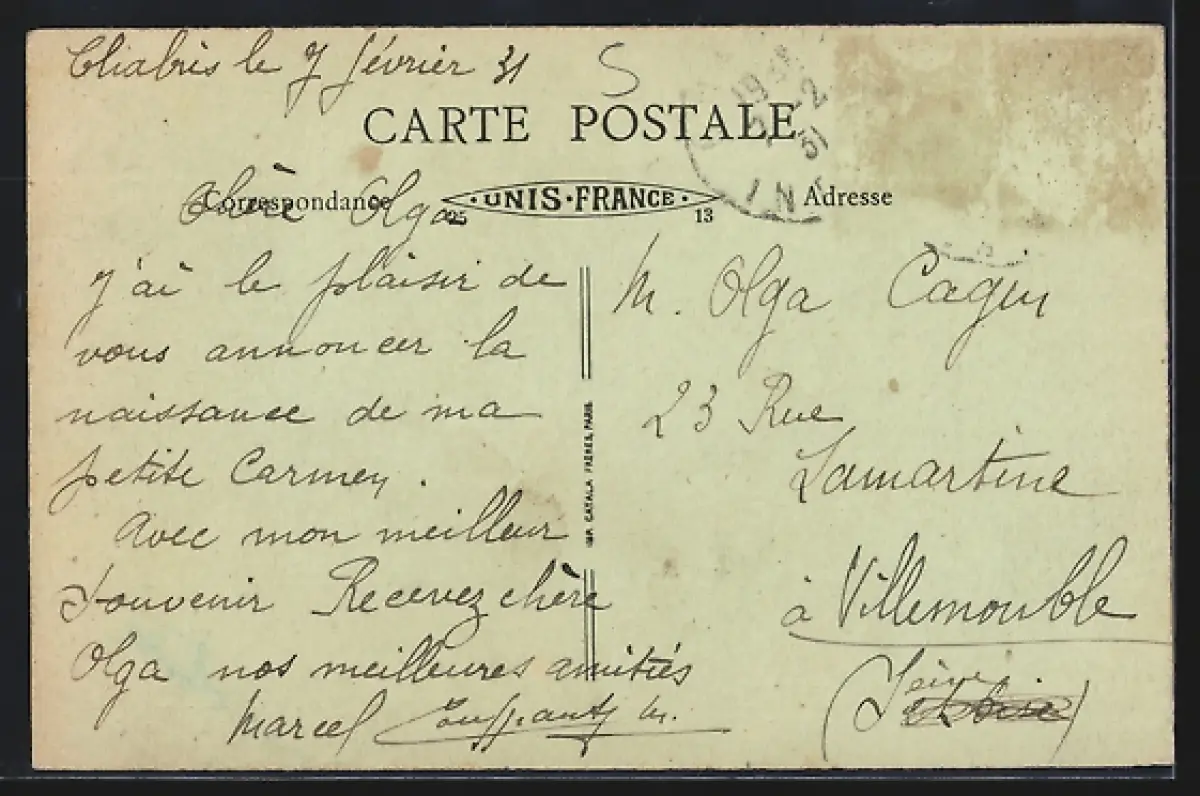 Chabris le 7 février 31
5
19
7 -2
31
IN
CARTE POSTALE
Correspondance
UNIS·FRANCE
Adresse
25
13
Chère Olga
J'ai le plaisir de
vous annoncer la
naissance de ma
petite Carmen.
Avec mon meilleur
souvenir Recevez chère
Olga nos meilleures amitiés
Marcel
IMP. CATALA FRÈRES, PARIS
M. Olga Cagin
23 Rue
Lamartine
à Villemouble
(Seine)